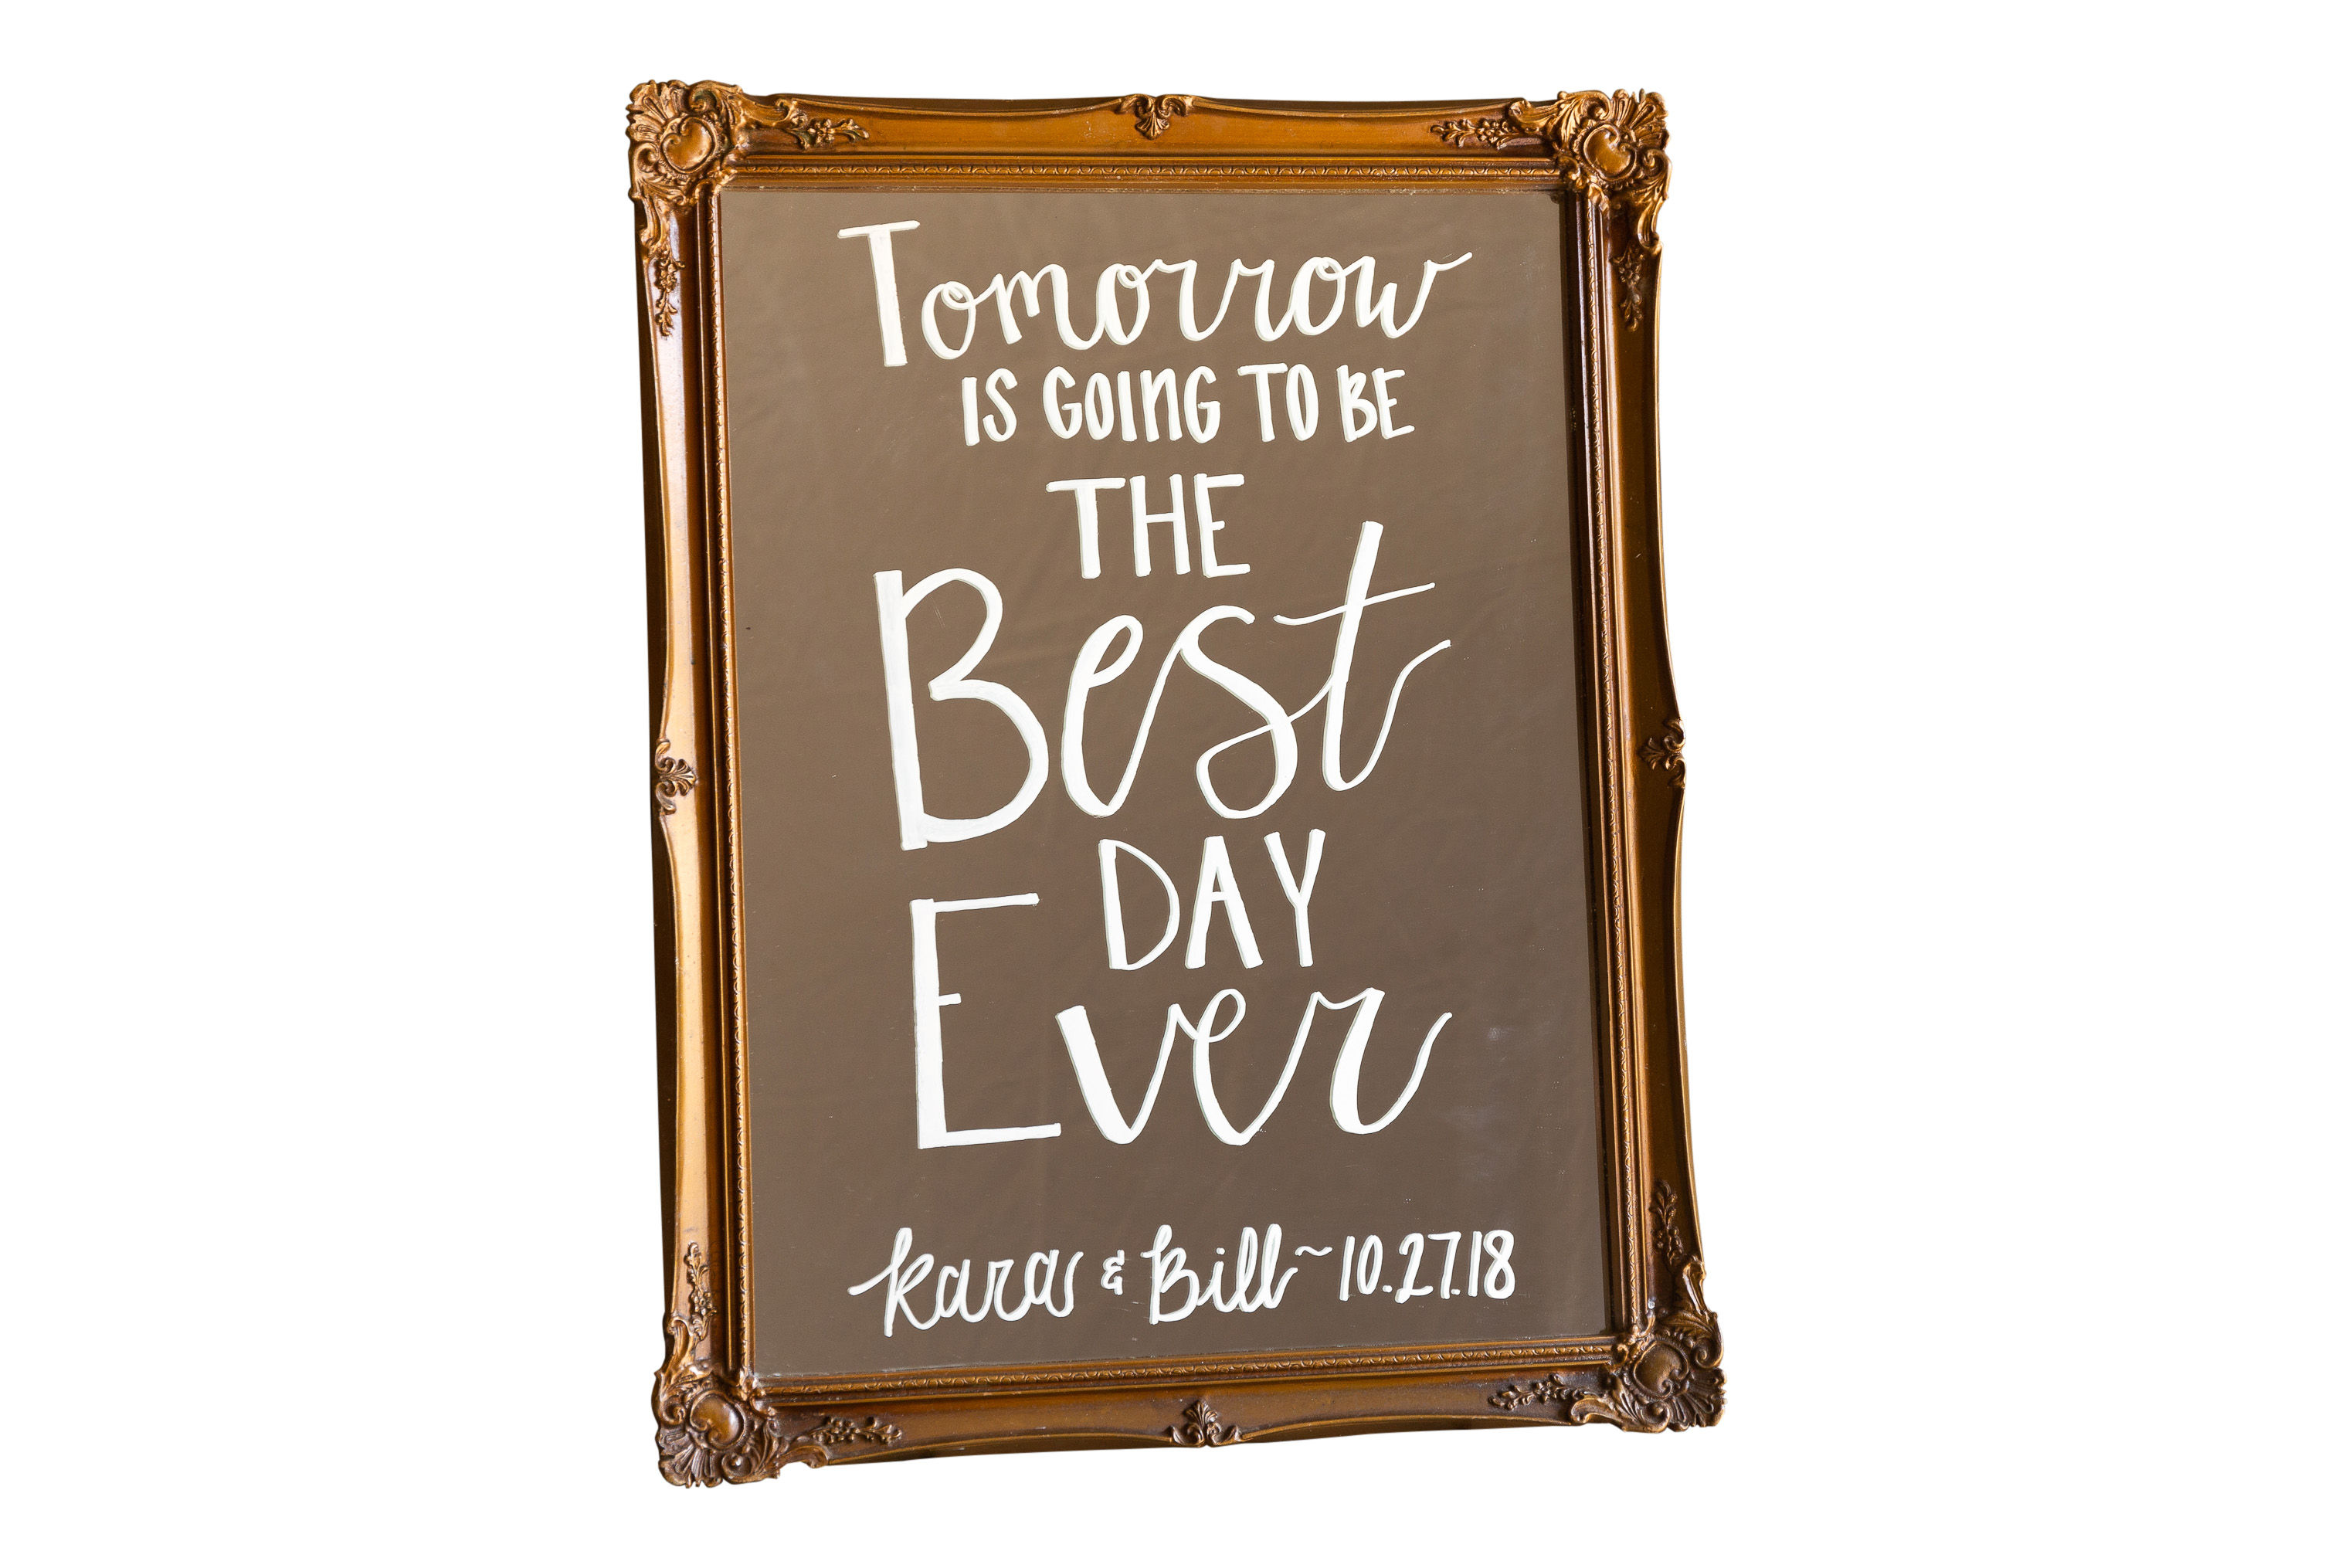 Tomorrow
IS GOING TO BE
THE
Best
DAY
Ever
Kara & Bill ~ 10.27.18